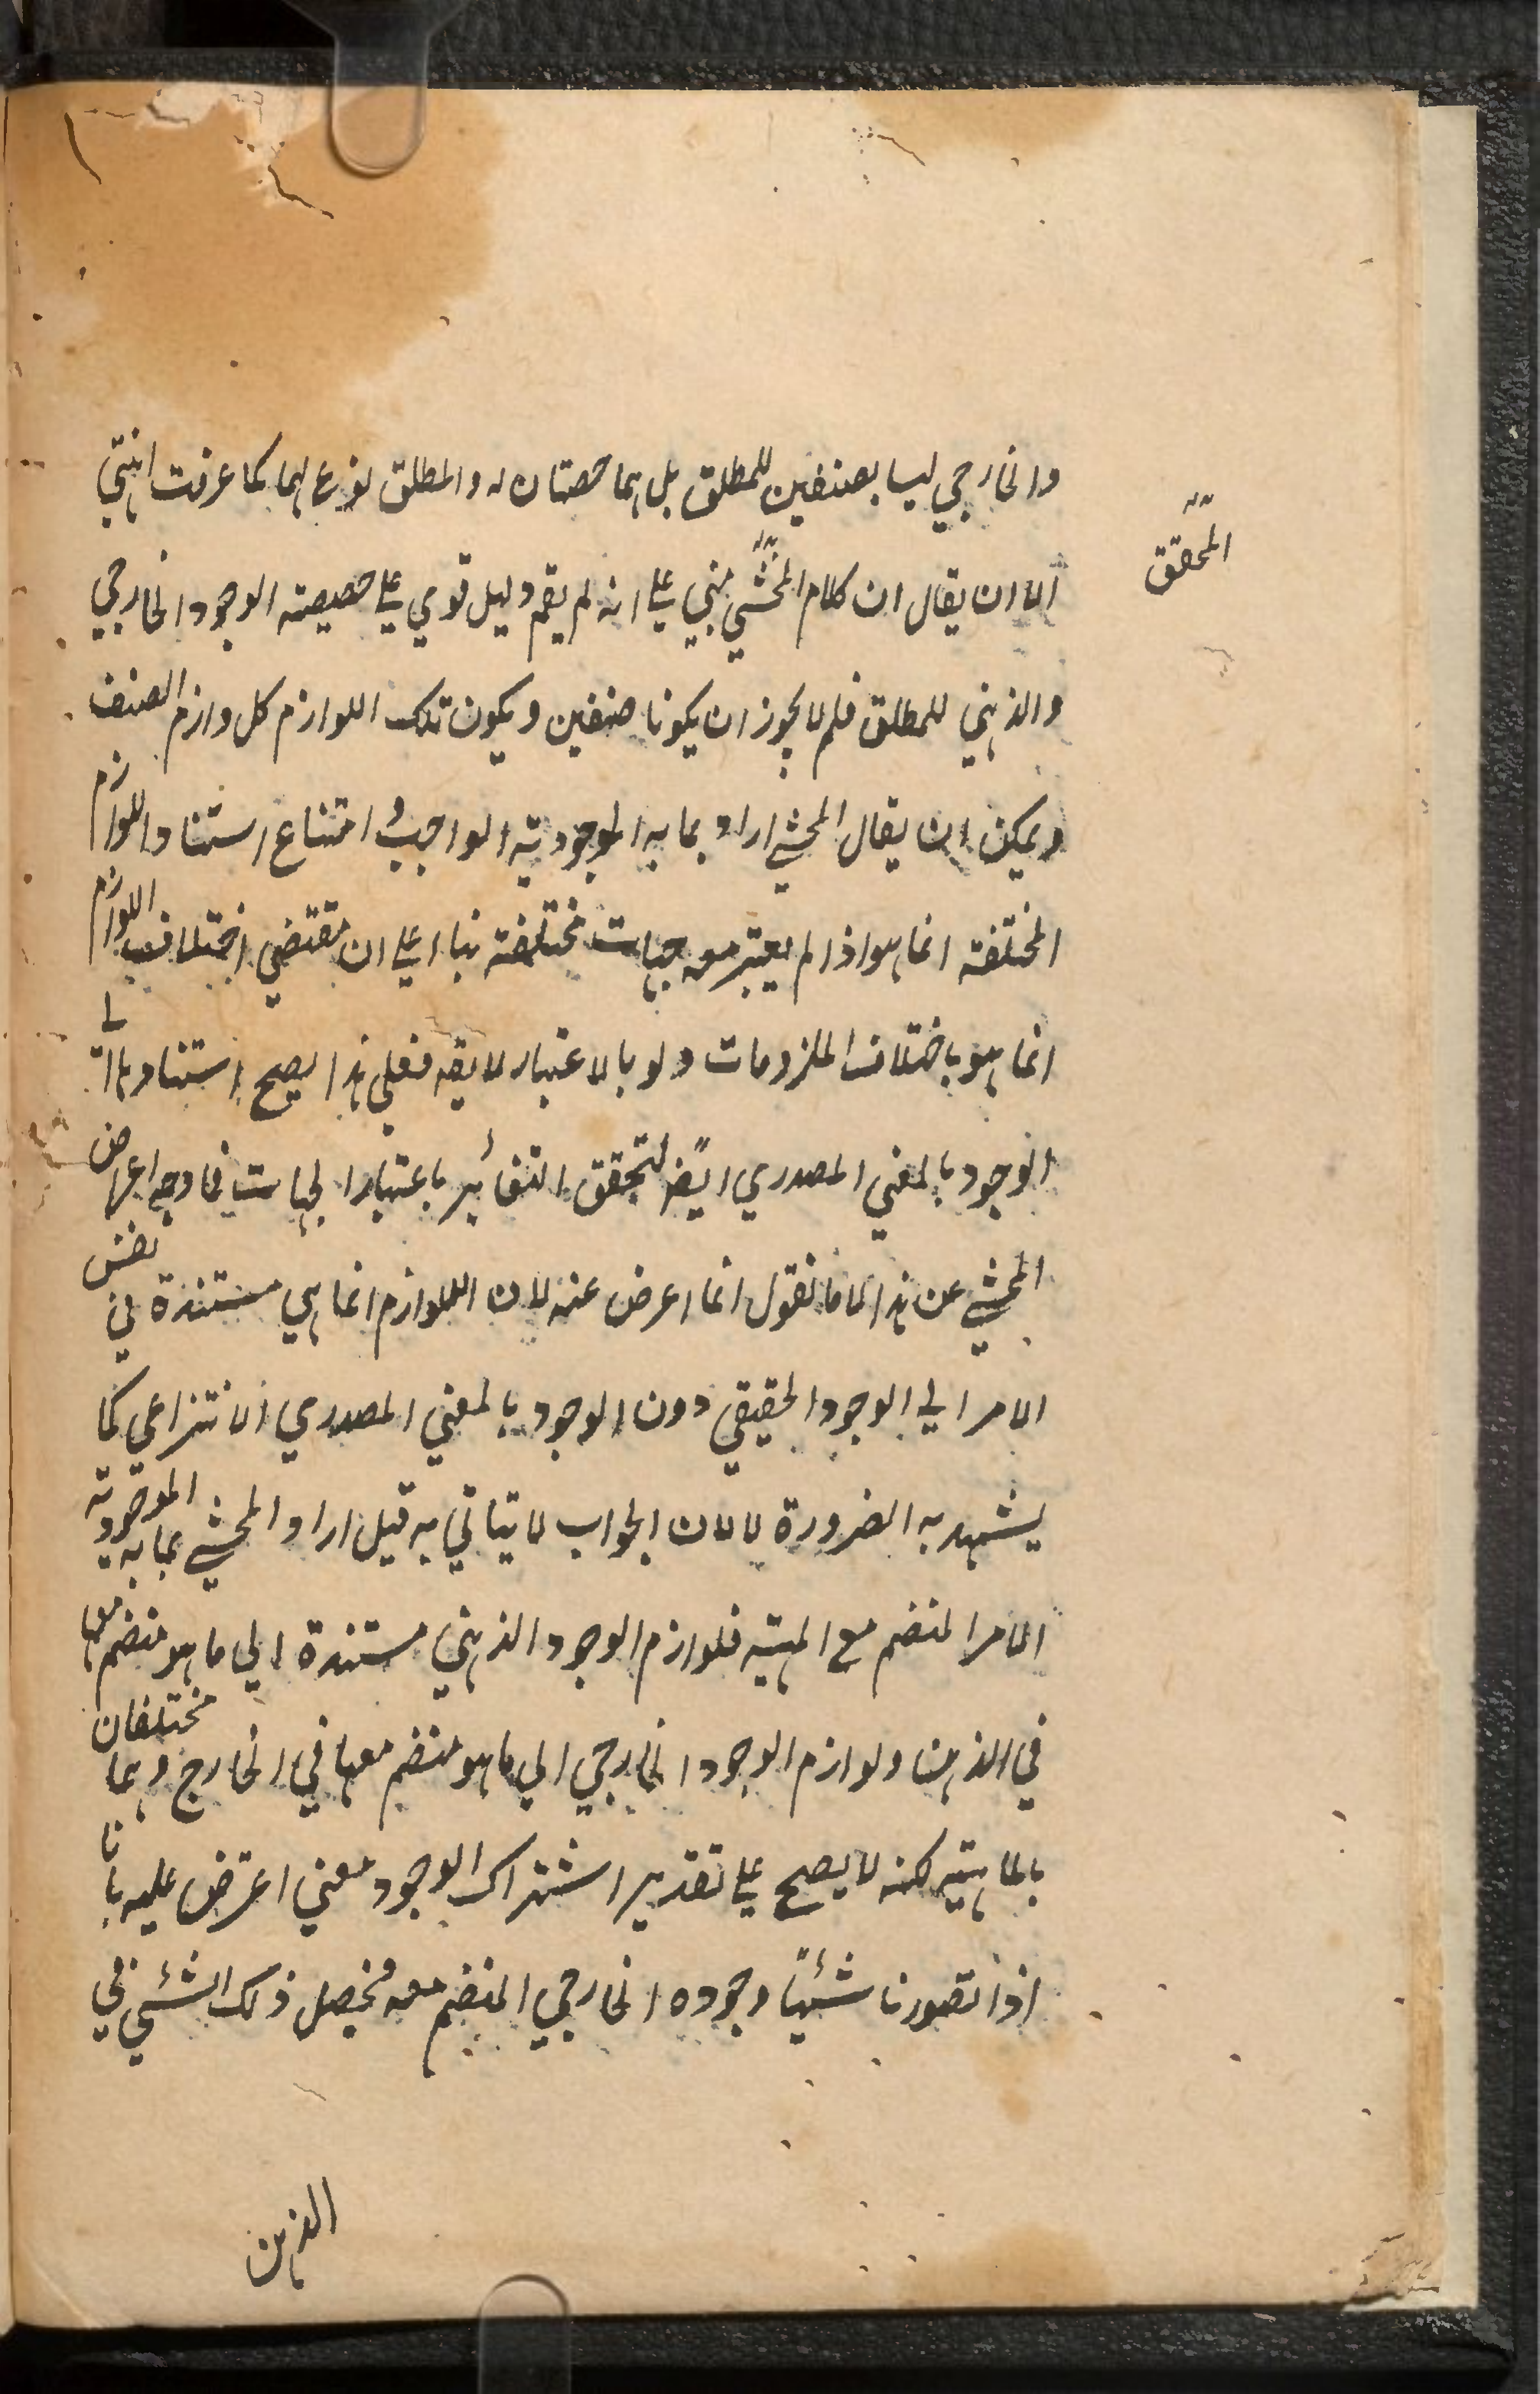 والخارجي ليسا بصنفين للمطلق بل هما حصتان له والمطلق نوع لهما كما عرفت انتهى
الا ان يقال ان كلام المحشي مبني على انه لم يقم دليل قوي على حصيصته الوجود الخارجي
المحقق
والذهني للمطلق فلم لا يجوز ان يكونا صنفين ويكون تلك اللوازم كل وازم الصنف
ويمكن ان يقال المحشي اراد بما به الموجودية الواجب و امتناع استناد اللوازم
المختلفة انما هو اذا لم يعتبر معه جهات مختلفة بناء على ان مقتضي اختلاف اللوازم
انما هو باختلاف الملزومات ولو بالاعتبار لا يقه فعلى هذا يصح استنادها الى
الوجود بالمعني المصدري ايضً لتحقق التغائر باعتبار الجهات فما وجه اعراض
المحشي عن هذا لانا نقول انما اعرض عنه لان اللوازم انما هي مستندة في نفس
الامر الي الوجود الحقيقي دون الوجود بالمعني المصدري الانتزاعي كما
يشهد به الضرورة لا لان الجواب لا يتاتي به قيل اراد المحشي بما به الموجودية
الامر المنضم مع المهية فلوازم الوجود الذهني مستندة الي ما هو منضم معها
في الذهن ولوازم الوجود الخارجي الي ما هو منضم معها في الخارج وهما مختلفان
بالماهية لكنه لا يصح على تقدير اشتراك الوجود معني اعترض عليه بانا
اذا تصورنا شيئًا وجوده الخارجي المنضم معه فيحصل ذلك الشئي في
الذهن